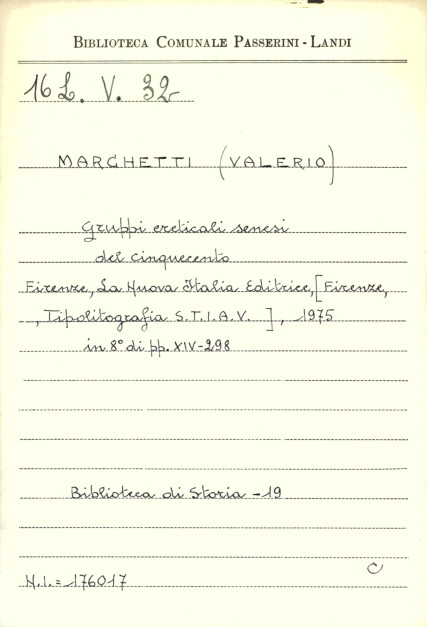 BIBLIOTECA COMUNALE PASSERINI-LANDI
16 L. V. 32
MARCHETTI (VALERIO)
Gruppi ereticali senesi
del cinquecento
Firenze, La Nuova Italia Editrice, [Firenze,
, Tipolitografia S.T.I.A.V. ], 1975
in 8° di pp. XIV-298
Biblioteca di Storia - 19
C
N.I. = 176017